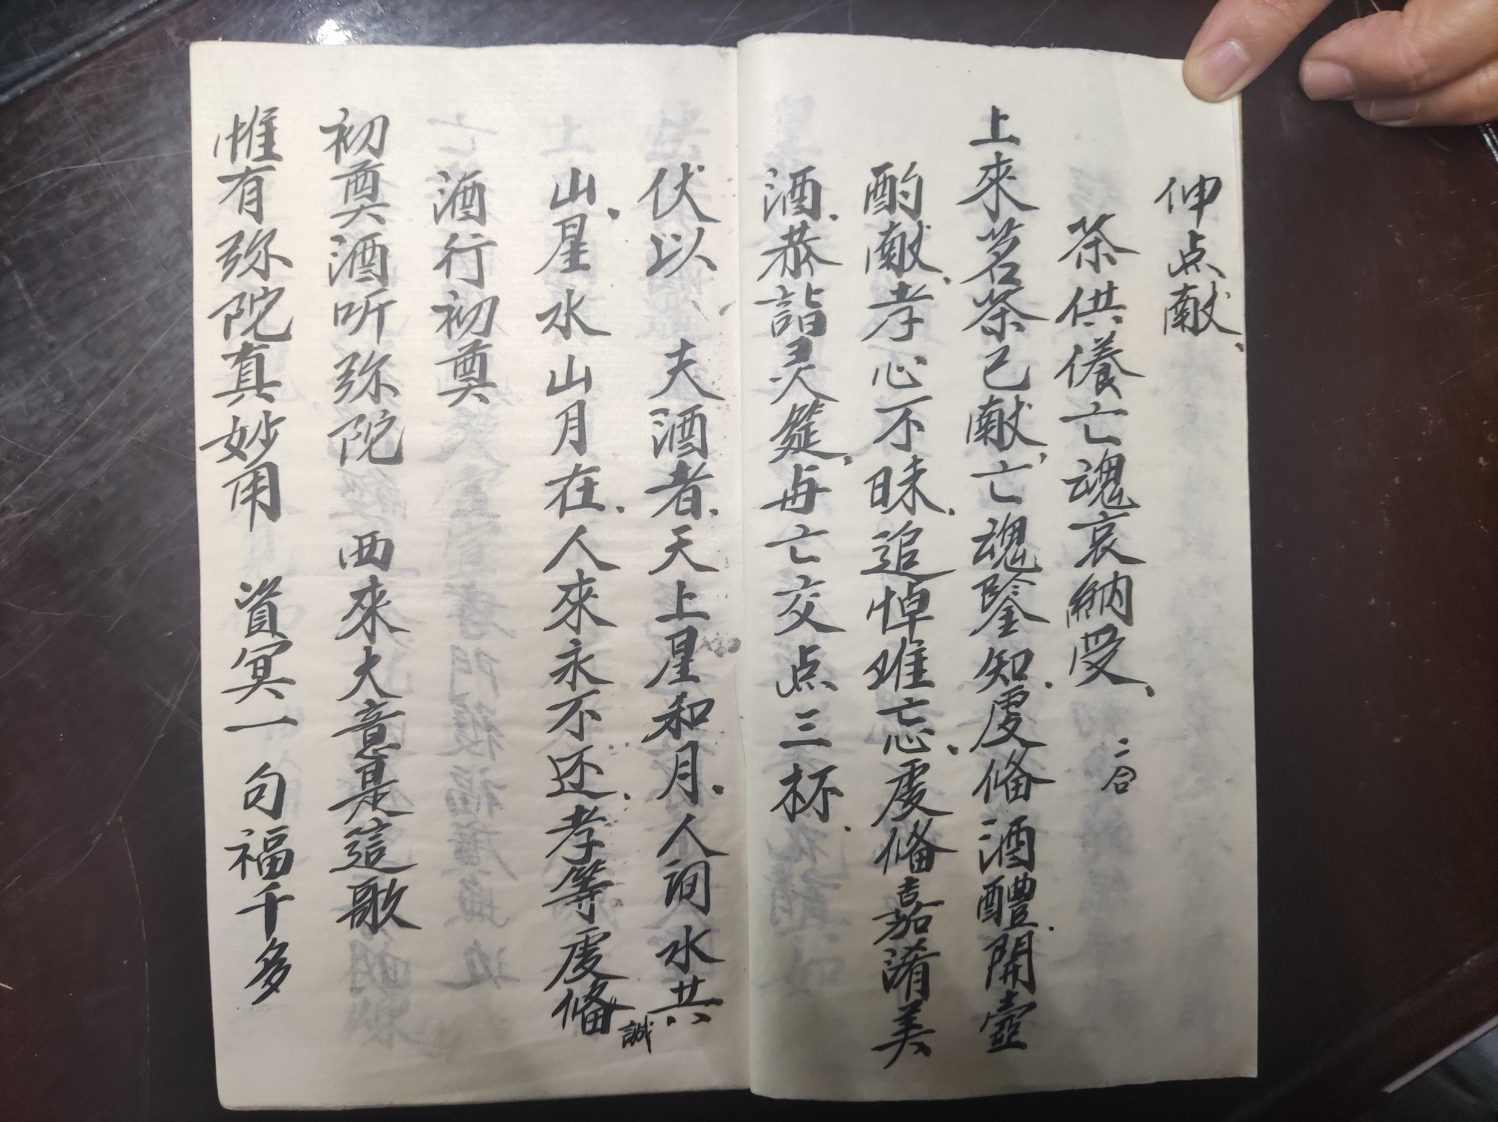 伸点献、
茶供養亡魂哀納受、二合
上來茗茶已献、亡魂鑒知.虔俻酒醴.開壺
酌献、孝心不昧.追悼难忘.虔俻嘉淆美
酒.恭詣灵筵、与亡交点三杯.
伏以 夫酒者.天上星和月.人间水共
山.星水山月在.人來永不还.孝等虔俻誠
酒行初奠
初奠酒听弥陀 西來大意是這歌
惟有弥陀真妙用 資冥一句福千多